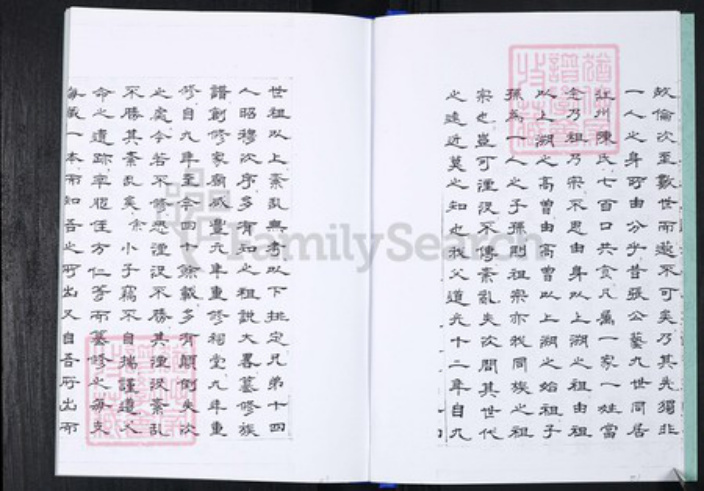 故倫次至數世而遂不可矣乃其先獨非
一人之身所由分乎昔張公藝九世同居
江州陳氏七百口共食凡屬一家一姓當
念乃祖乃宗不思由身以上溯之祖由祖
以上溯之高曾由高曾以上溯之始祖子
孫為一人之子孫則祖宗亦我同族之祖
宗也豈可湮沒不傳紊亂失次間其世代
之遠近莫之知也我父道光十二年自九
世祖以上紊亂無考以下排定兄弟十四
人昭穆次序多有知之祖說大畧纂修族
譜創修家廟咸豐元年重修祠堂九年重
修自九年至今四十餘載多有顛倒失次
之處今若不修恐湮沒不勝其湮沒紊亂
不勝其紊亂矣余小子竊不自揣謹遵人
命之遺跡率胞侄方仁等而纂修之每支
每藏一本而知吾之所出又自吾所出而
FamilySearch